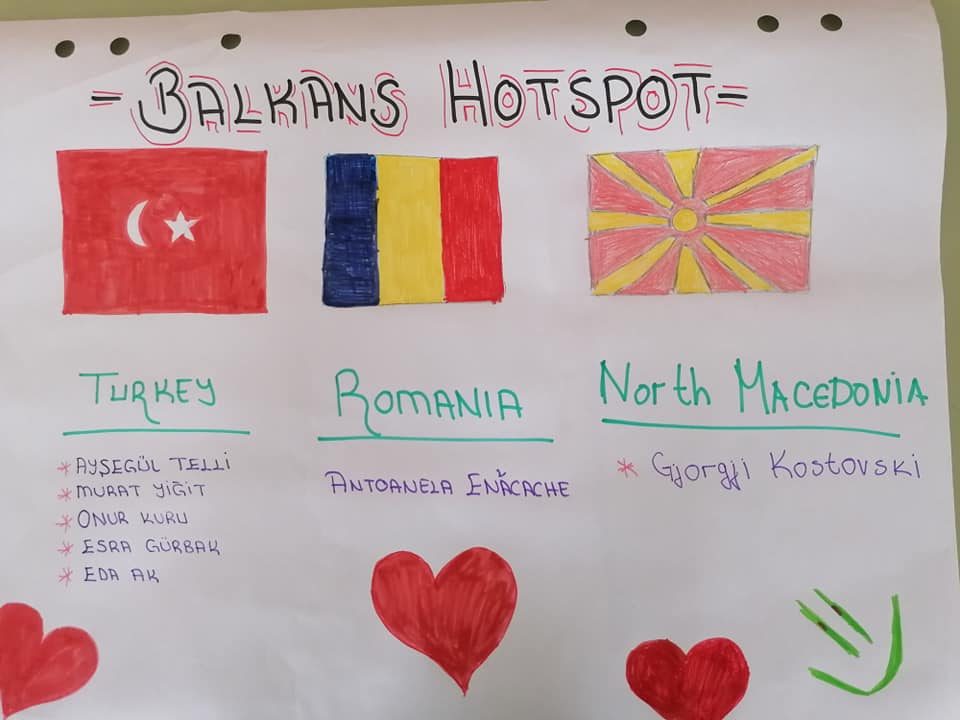 = BALKANS HOTSPOT =
TURKEY
* AYŞEGÜL TELLİ
* MURAT YİĞİT
* ONUR KURU
* ESRA GÜRBAK
* EDA AK
ROMANIA
ANTOANELA ENĂCACHE
North MACEDONiA
* Gjorgji Kostovski